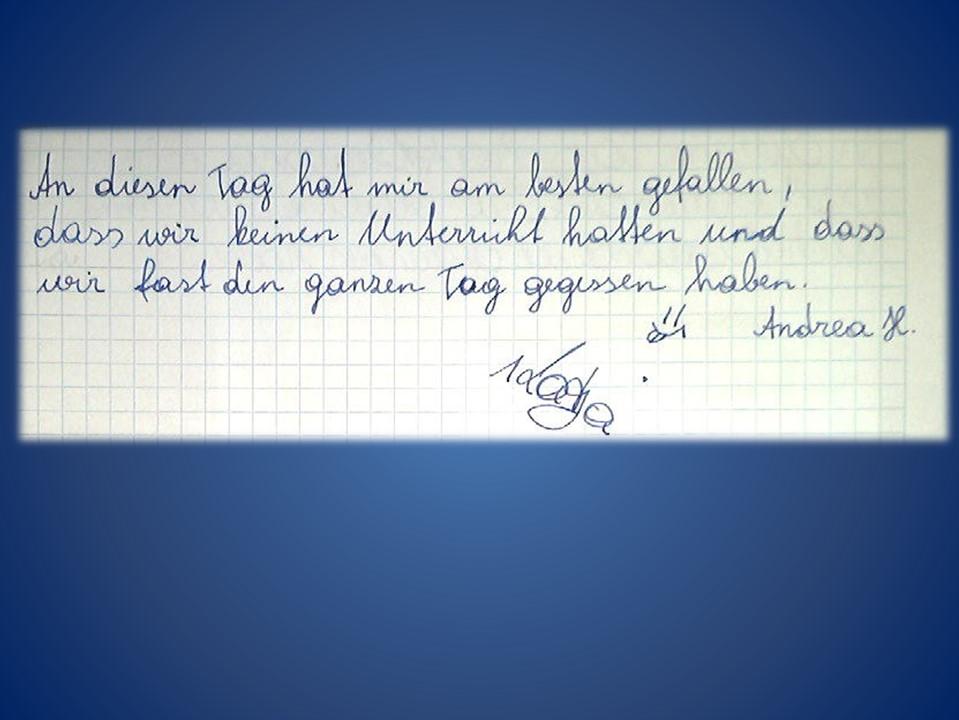 An diesen Tag hat mir am besten gefallen,
dass wir keinen Unterricht hatten und dass
wir fast den ganzen Tag gegessen haben.
Andrea H.